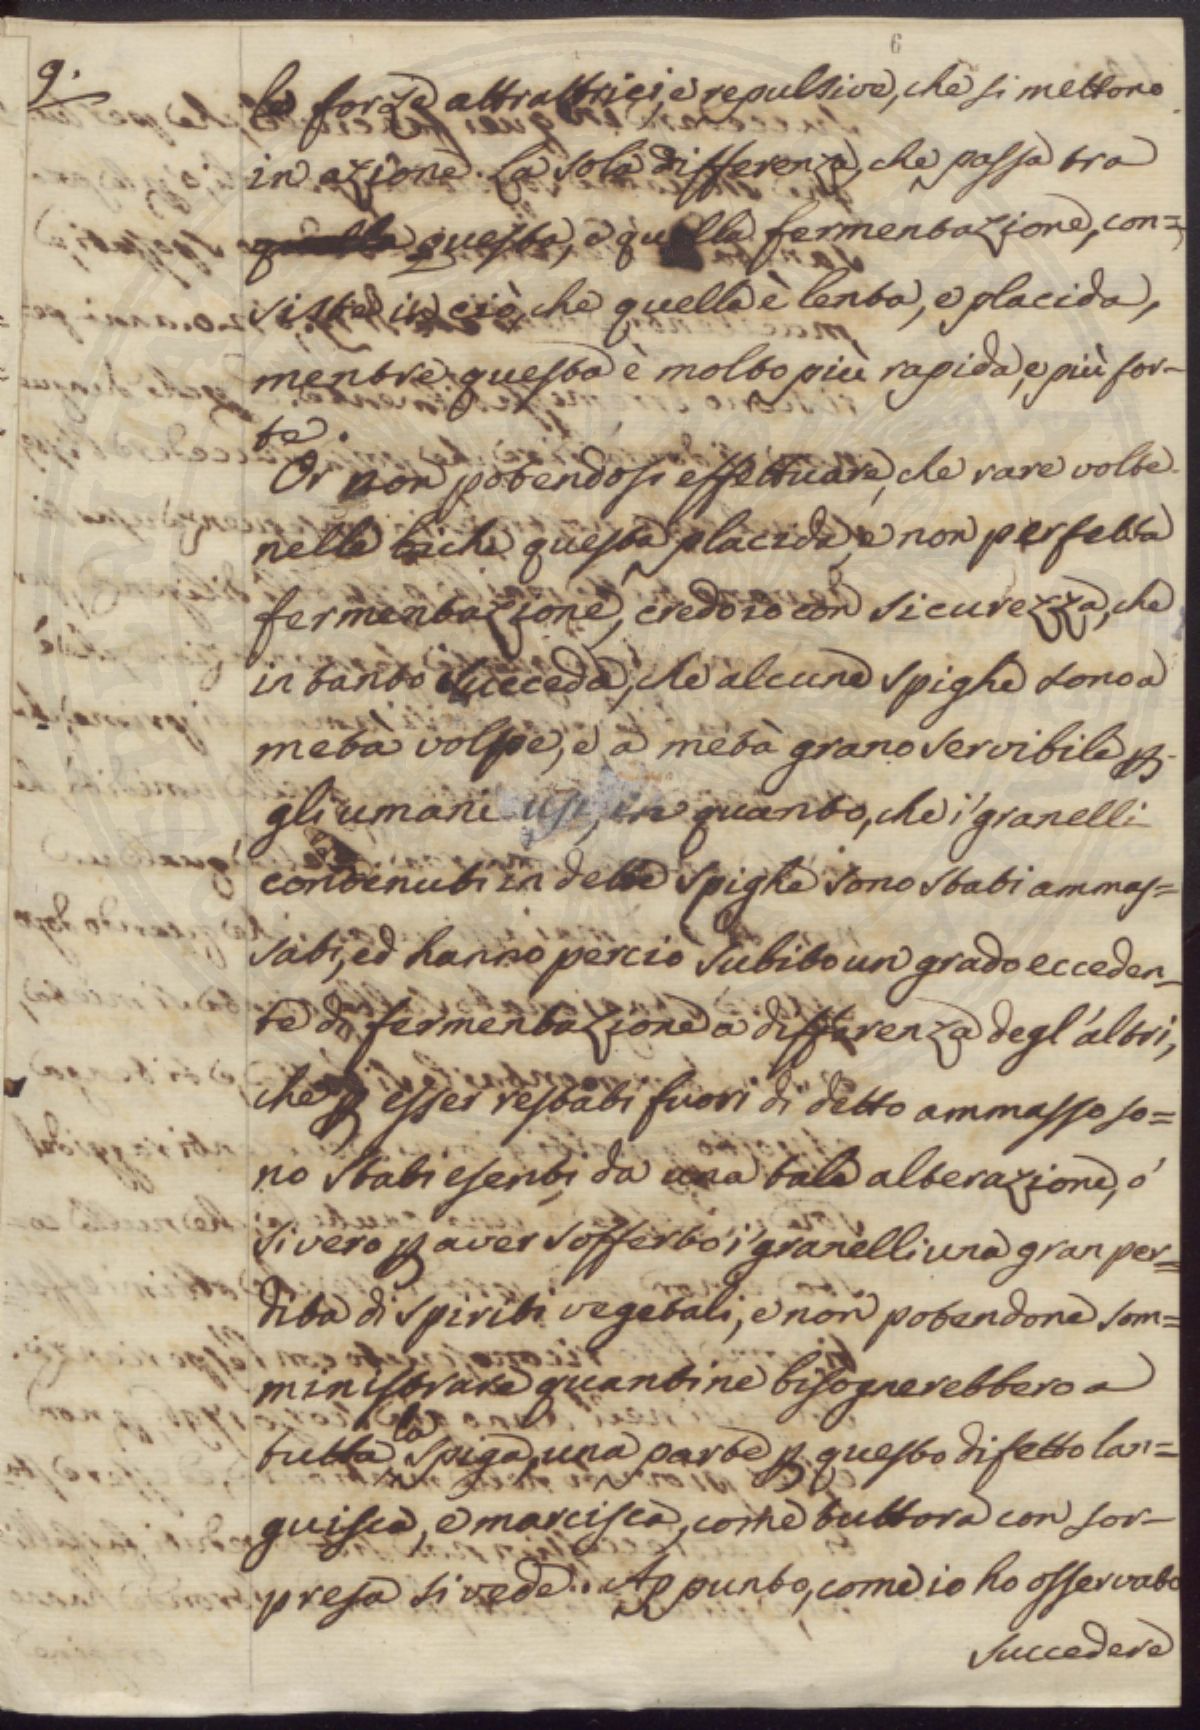 6
9.
le forze attrattrici, e repulsive, che si mettono
in azione. La sola differenza, che passa tra
quella questa, e quella fermentazione, con=
siste in ciò, che quella è lenta, e placida,
mentre questa è molto più rapida, e più for-
te.
Or non potendosi effettuare, che rare volte
nelle biche questa placida, e non perfetta
fermentazione, credo io con sicurezza, che
in tanto succeda, che alcune spighe sono a
metà volpe, e a metà grano servibile p.
gli umani usi, in quanto, che i' granelli
contenuti in dette spighe sono stati ammas=
sati, ed hanno percio subito un grado ecceden-
te di fermentazione a differenza degl'altri,
che p esser restati fuori di detto ammasso so=
no stati esenti da una tale alterazione, ó
si vero p aver sofferto i' granelli una gran per=
dita di spiriti vegetali, e non potendone som=
ministrare quanti ne bisognerebbero a
tutta la spiga, una parte p questo difetto lan=
guisca, e marcisca, come tuttora con sor-
presa si vede. Appunto, come io ho osservato
succedere